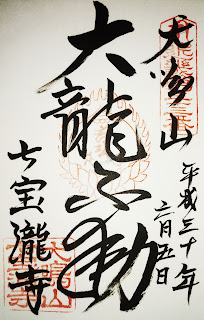 犬鳴山
平成三十年
月五日
大龍不動
七宝瀧寺